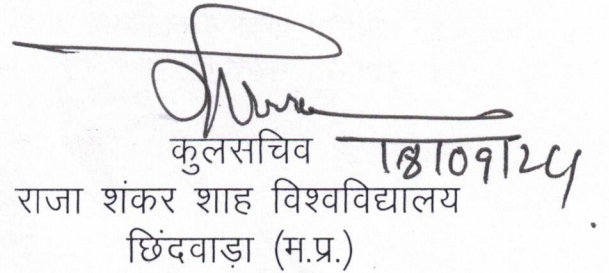 कुलसचिव 18/09/24
राजा शंकर शाह विश्वविद्यालय
छिंदवाड़ा (म.प्र.)